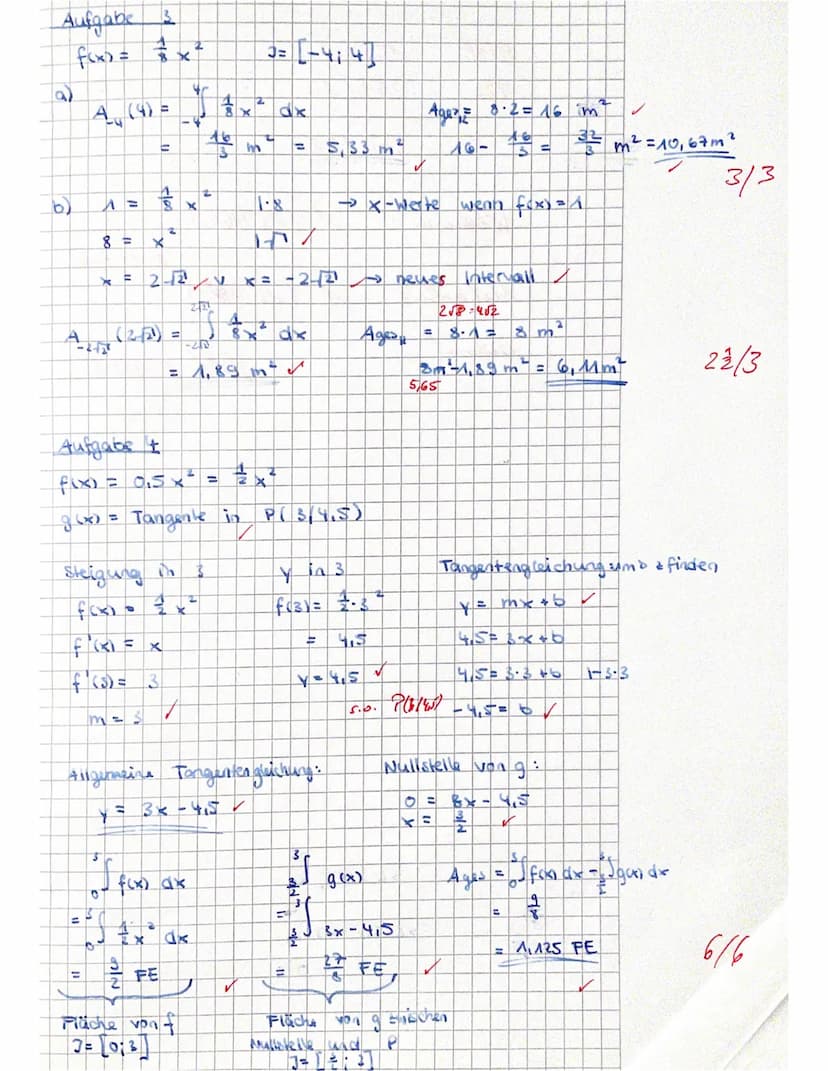 Aufgabe 3
f(x) = 1/8 x² J = [-4; 4]
a)
A₋₄(4) = ∫₋₄⁴ 1/8 x² dx Ages_R = 8·2 = 16 m² ✓
= 16/3 m² = 5,33 m² ✓ 16 - 16/3 = 32/3 m² = 10,67 m² ✓
3/3
b) 1 = 1/8 x² |·8 → x-Werte wenn f(x) = 1
8 = x² |√ ✓
x = 2√2 ✓ v x = -2√2 ✓ → neues Intervall ✓
2√8 = 4√2
A₋₂√₂(2√2) = ∫₋₂√₂^2√2 1/8 x² dx Ages_R = 8·1 = 8 m²
= 1,89 m² ✓ 8m² - 1,89 m² = 6,11 m²
5,65
2 1/2 /3
Aufgabe 4
f(x) = 0,5 x² = 1/2 x²
g(x) = Tangente in P(3/4,5) ✓
Steigung in 3 y in 3 Tangentengleichung um b zu finden
f(x) = 1/2 x² f(3) = 1/2·3² y = mx + b ✓
f'(x) = x = 4,5 4,5 = 3x + b
f'(3) = 3 y = 4,5 ✓ 4,5 = 3·3 + b |-3·3
m = 3 ✓ s.o. P(3/4,5) -4,5 = b ✓
Allgemeine Tangentengleichung: Nullstelle von g:
y = 3x - 4,5 ✓ 0 = 3x - 4,5
x = 3/2 ✓
∫₀³ f(x) dx ∫_(3/2)^3 g(x) Ages = ∫₀³ f(x) dx - ∫_(3/2)^3 g(x) dx
= ∫₀³ 1/2 x² dx = ∫_(3/2)^3 3x - 4,5 = 9/8
= 9/2 FE ✓ = 27/8 FE ✓ = 1,125 FE ✓
6/6
Fläche von f Fläche von g zwischen
J = [0; 3] Nullstelle und P
J = [3/2; 3]